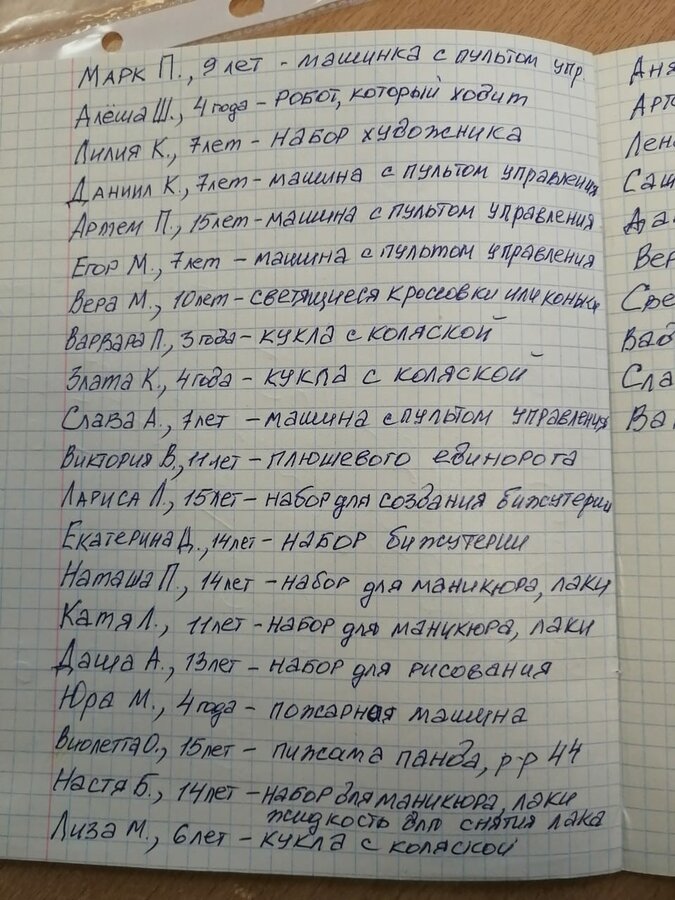 Марк П., 9 лет - машинка с пультом упр
Алёша Ш., 4 года - робот, который ходит
Лилия К., 7лет - набор художника
Даниил К., 7лет - машина с пультом управления
Артем П., 15лет - машина с пультом управления
Егор М., 7лет - машина с пультом управления
Вера М., 10лет - светящиеся кроссовки или коньки
Варвара П., 3 года - кукла с коляской
Злата К., 4 года - кукла с коляской
Слава А., 7лет - машина с пультом управления
Виктория В., 11лет - плюшевого единорога
Лариса Л., 15лет - набор для создания бижутерии
Екатерина Д., 14лет - набор бижутерии
Наташа П., 14лет - набор для маникюра, лаки
Катя Л., 11лет - набор для маникюра, лаки
Даша А., 13лет - набор для рисования
Юра М., 4 года - пожарная машина
Виолетта О., 15лет - пижама панда, р-р 44
Настя Б., 14лет - набор для маникюра, лаки
жидкость для снятия лака
Лиза М., 6 лет - кукла с коляской
Аня